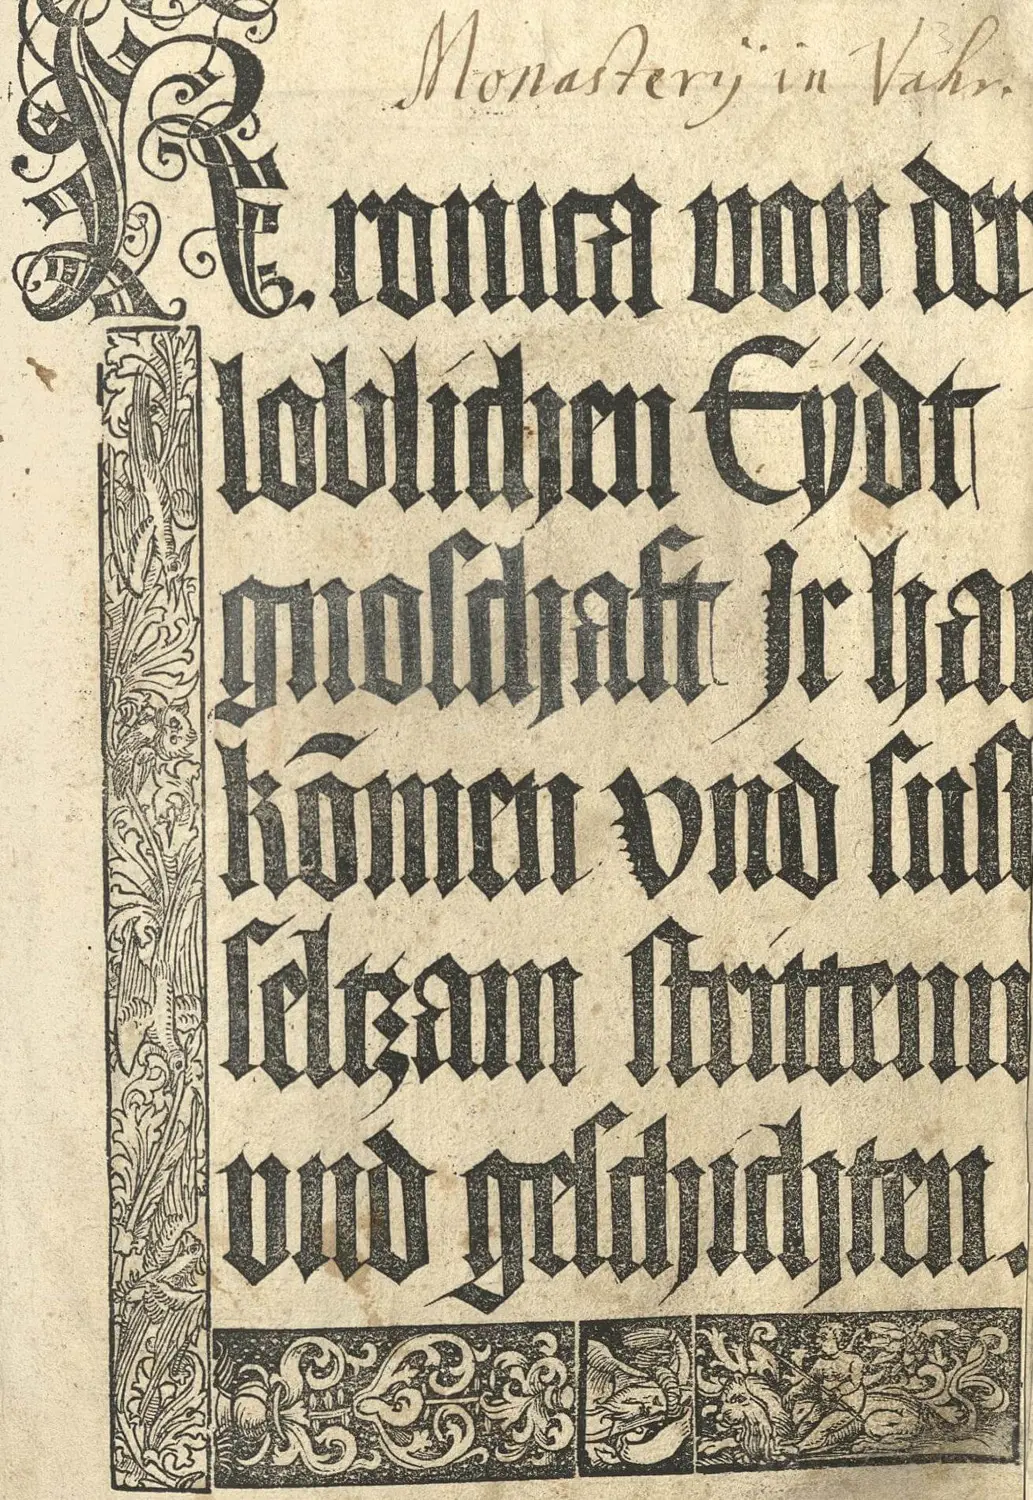 Monasterÿ in Vahr.
Kronica von der
loblichen Eydt
gnoschafft Jr har
kōmen vnd sust
seltzam strittenn
vnd geschichten.